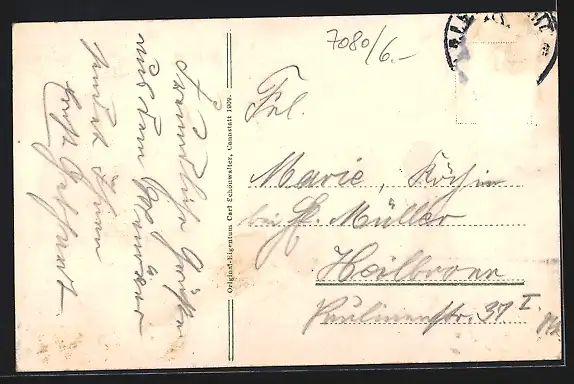 7080/6.-
Frl.
Marie, Köchin
bei H. Müller
Heilbronn
Paulinenstr. 37 I.
Original-Eigentum Carl Schönwalter, Cannstatt 1909.
Freundliche Grüße
aus dem Manöver
sendet Ihnen